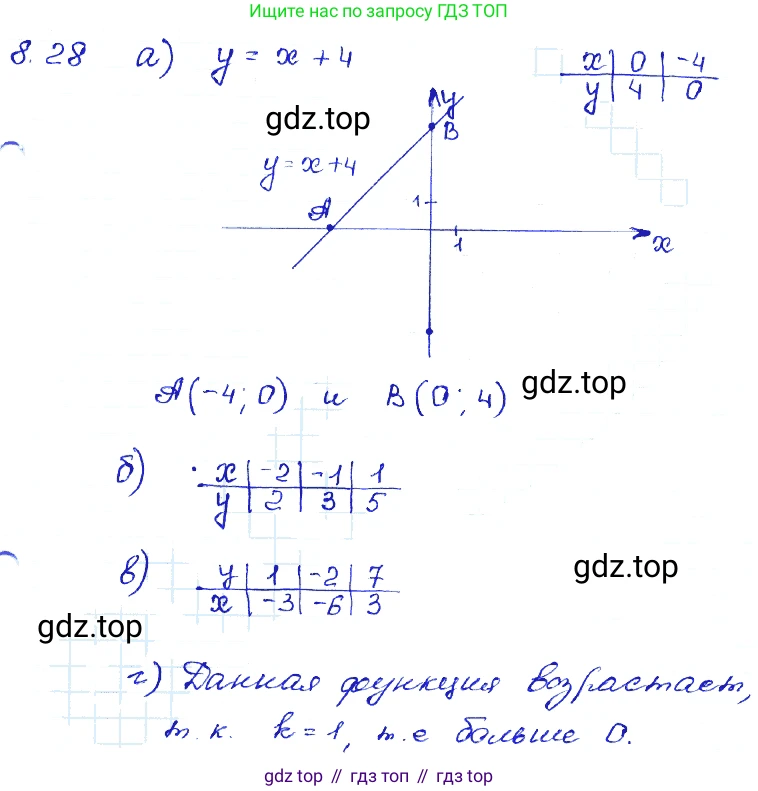 Ищите нас по запросу ГДЗ ТОП
8.28 а) y = x + 4
x | 0 | -4
y | 4 | 0
gdz.top
y
B
y = x+4
A
1
1
x
A(-4; 0) и B(0; 4)
gdz.top
б) x | -2 | -1 | 1
y | 2 | 3 | 5
в) y | 1 | -2 | 7
x | -3 | -6 | 3
gdz.top
gdz.top
г) Данная функция возрастает,
т.к. k = 1, т.е больше 0.
gdz top // гдз топ // gdz top